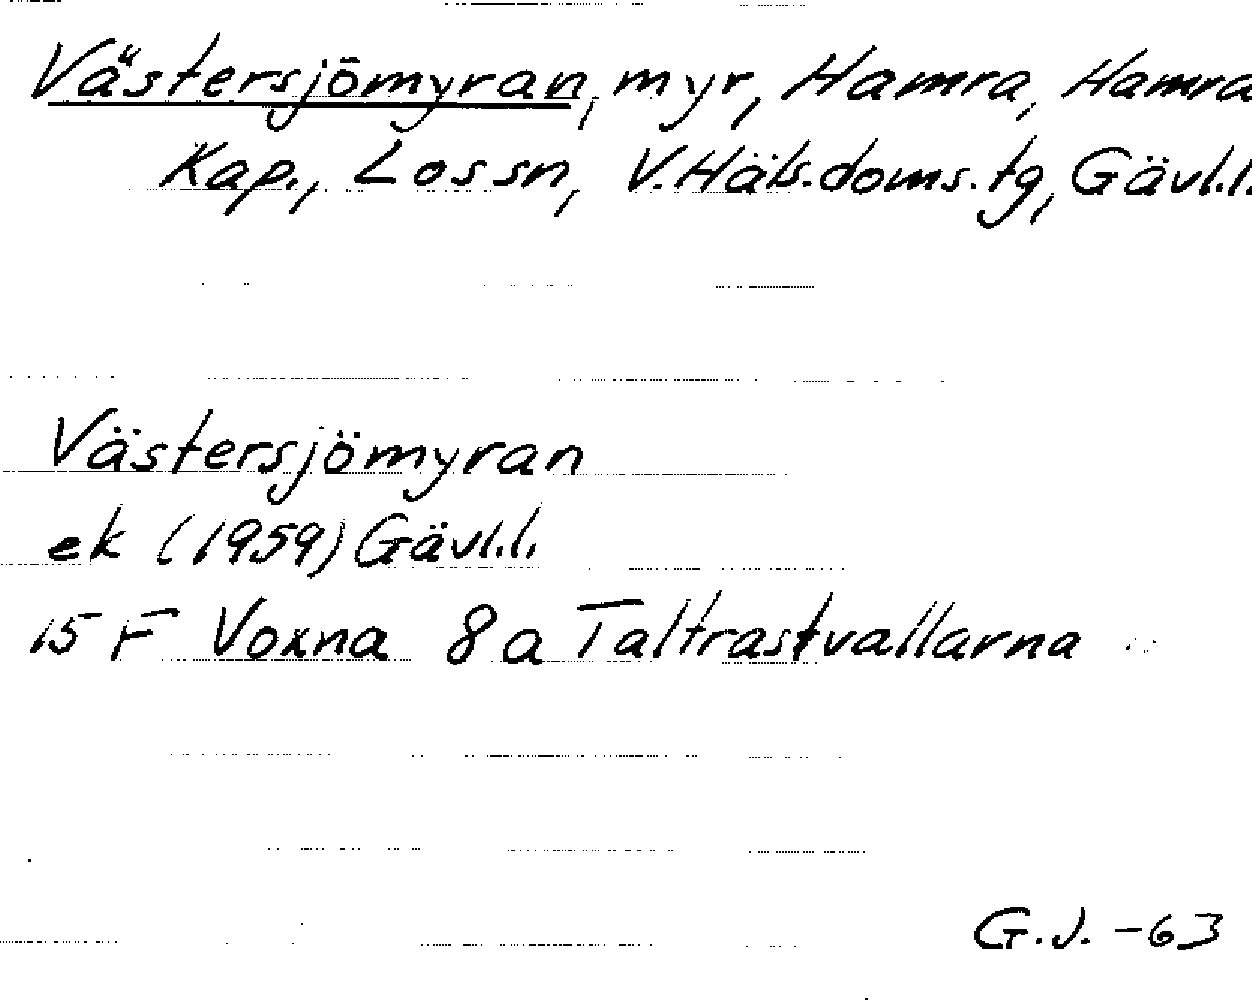 Västersjömyran, myr, Hamra, Hamra
Kap., Los sn, V. Häls. doms. tg, Gävl.l.
Västersjömyran
ek (1959) Gävl.l.
15 F Voxna 8 a Taltrastvallarna
G.J. -63